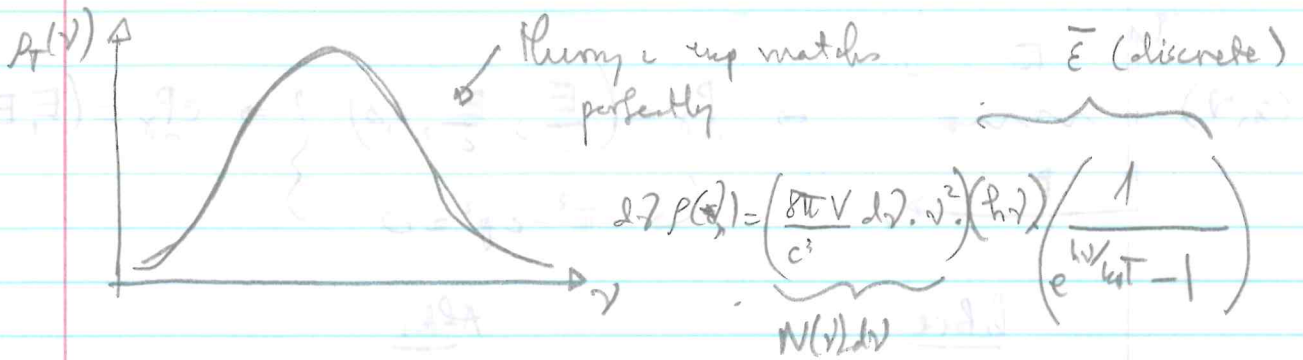 ρ_T(ν)
Theory & exp matches
perfectly
ε̄ (discrete)
dν ρ(ν) = (8πV/c³ dν·ν²)·(hν)·(1/(e^{hν/k_BT} − 1))
N(ν)dν
ν